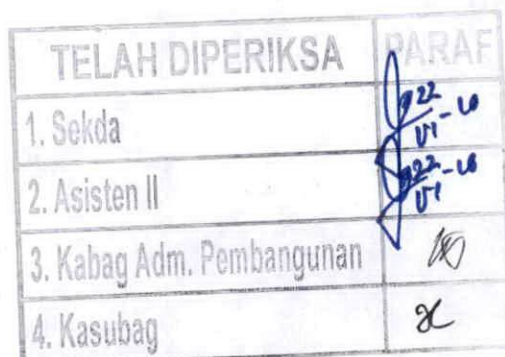 TELAH DIPERIKSA PARAF
1. Sekda 22/VI-
2. Asisten II 22/VI-
3. Kabag Adm. Pembangunan
4. Kasubag